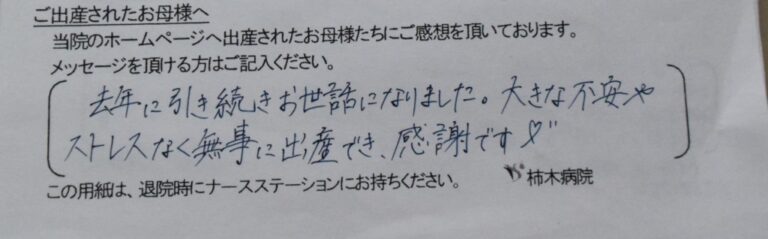 ご出産されたお母様へ
当院のホームページへ出産されたお母様たちにご感想を頂いております。
メッセージを頂ける方はご記入ください。
去年に引き続きお世話になりました。大きな不安や
ストレスなく無事に出産でき、感謝です♡
この用紙は、退院時にナースステーションにお持ちください。 柿木病院